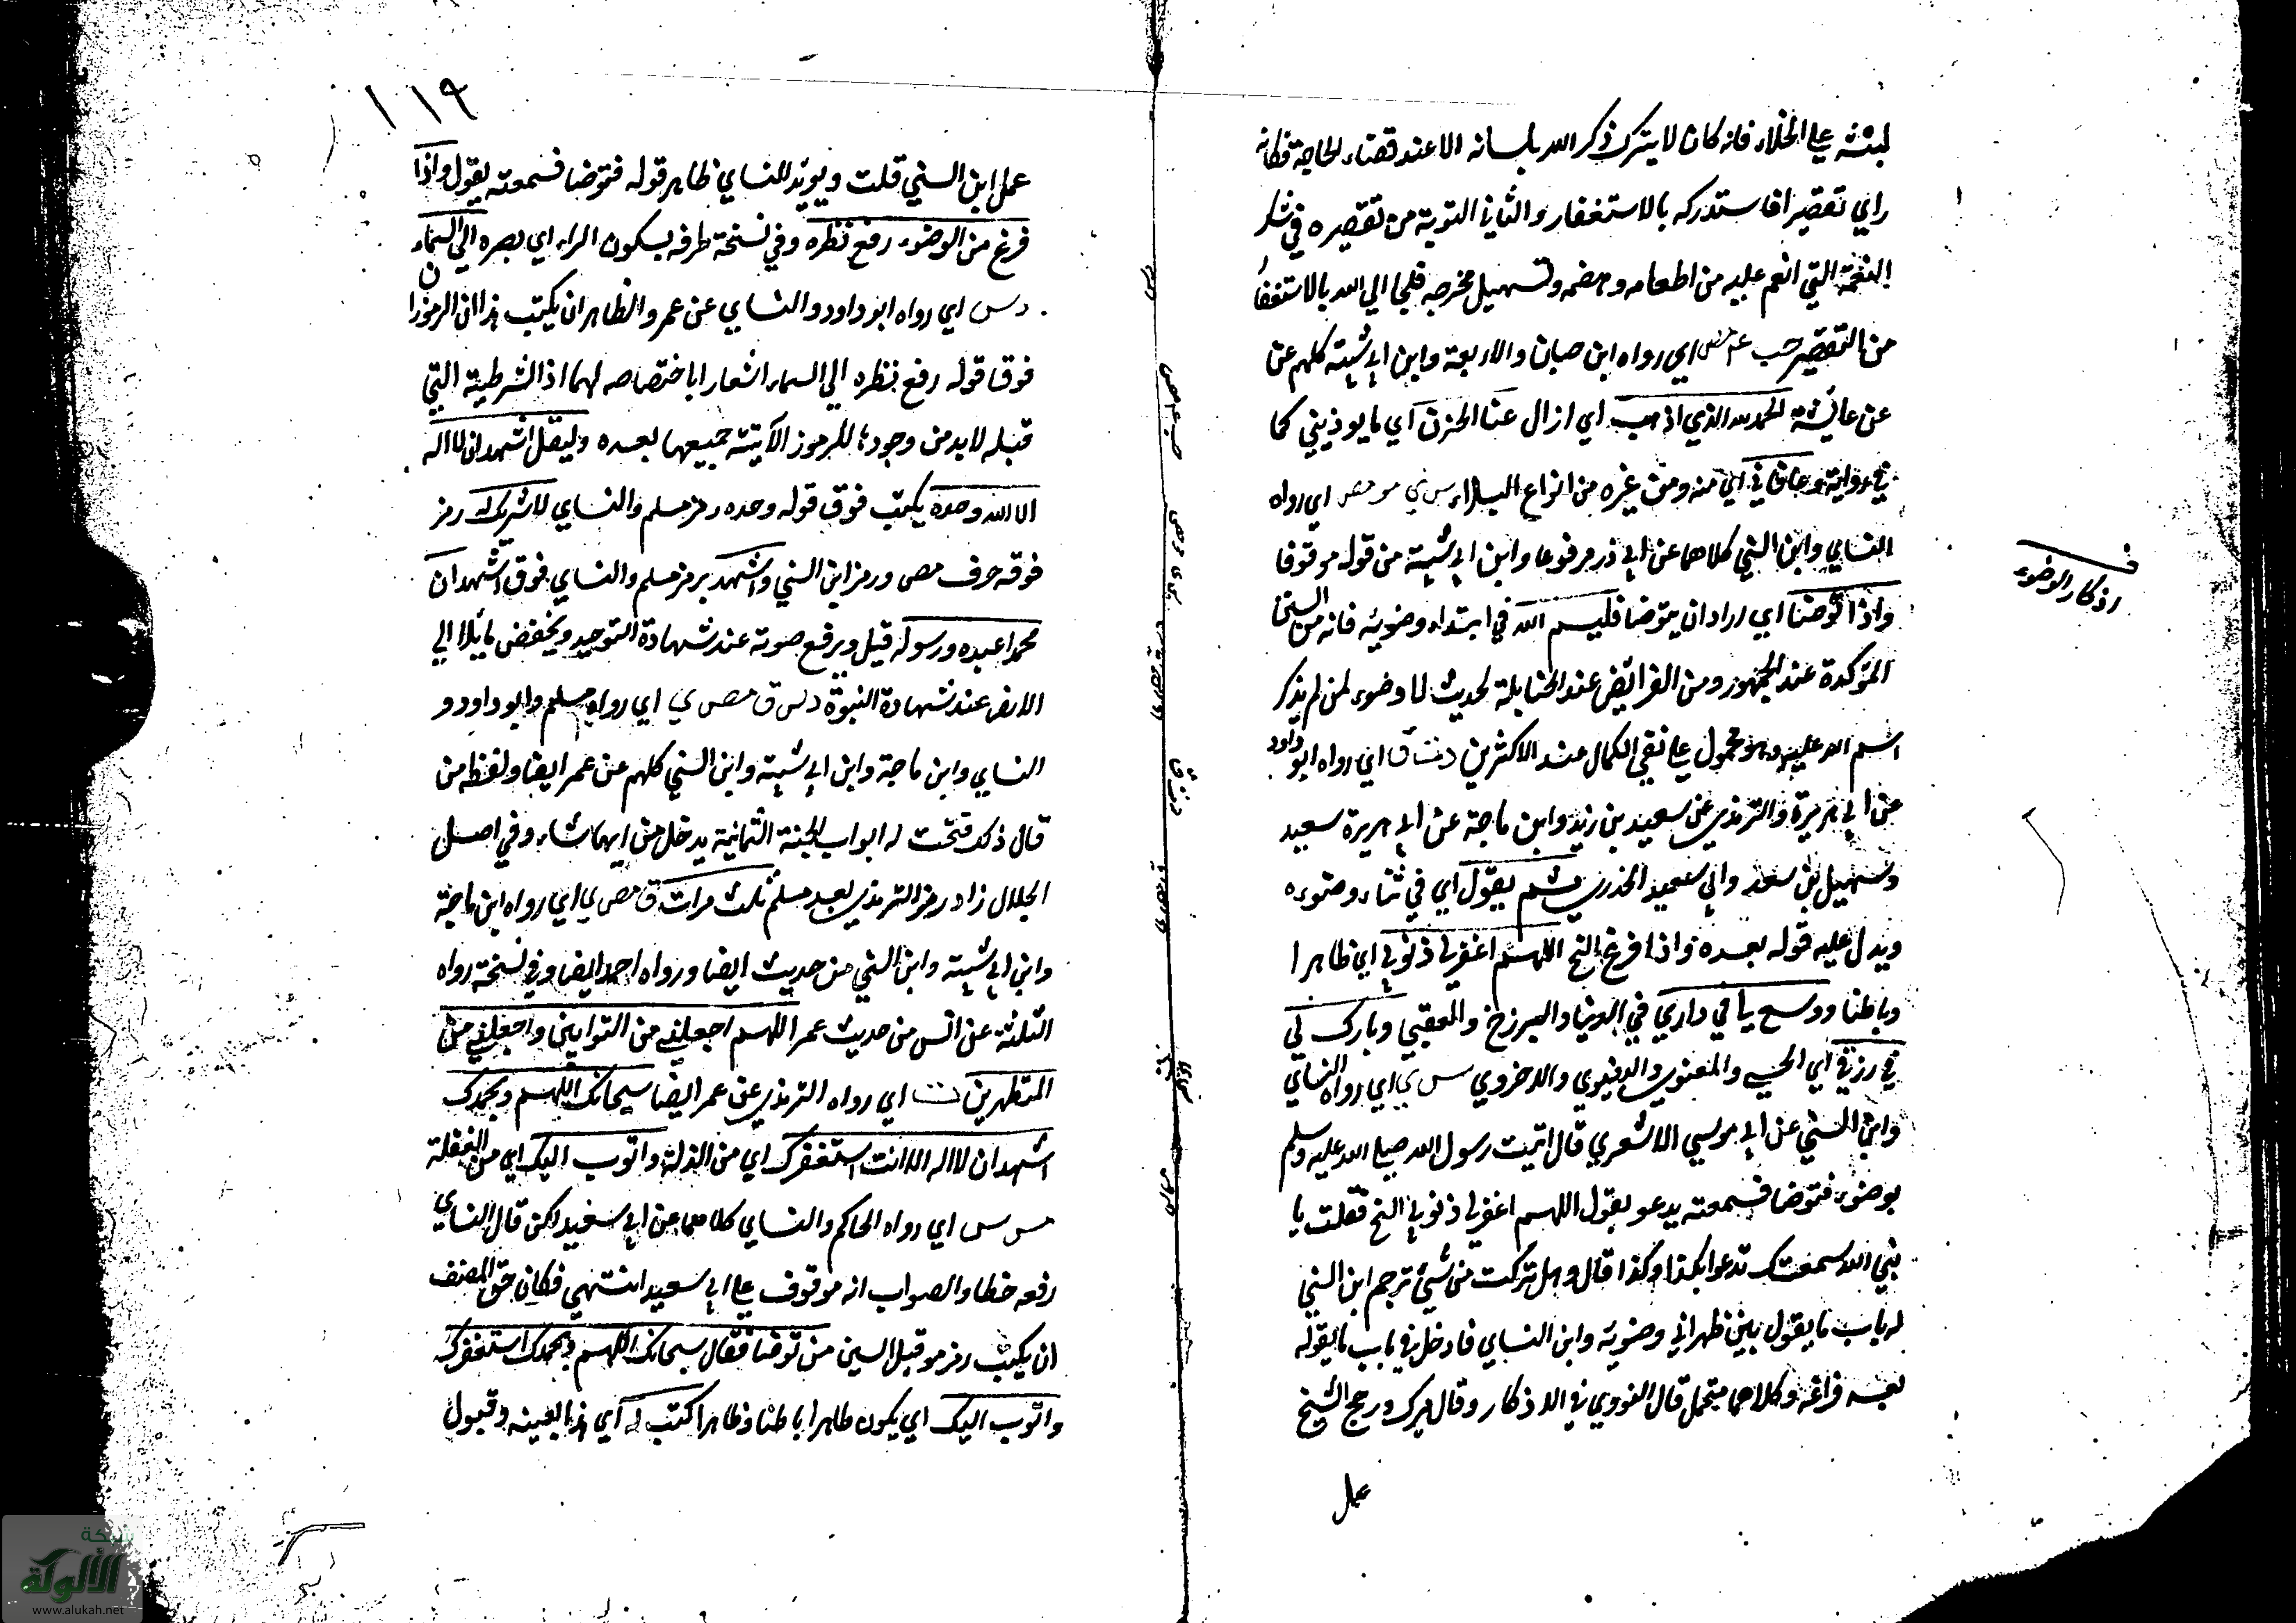 لبثه علي الخلاء فانه كان لا يترك ذكر الله بلسانه الا عند قضاء الحاجة فكانه
راي تقصيرا فاستدركه بالاستغفار والثاني التوبة من تقصيره في شكر
النعمة التي انعم عليه من اطعامه وهضمه وتسهيل مخرجه فلجا الي الله بالاستغفا
من التقصير حب عه مص اي رواه ابن حبان والاربعة وابن ابي شيبة كلهم عن
عن عايشة الحمد لله الذي اذهب اي ازال عنا الحزن اي ما يوذيني كما
في رواية وعافاني اي منه ومن غيره من انواع البلاء س ي مو مص اي رواه
النساي وابن السني كلاهما عن ابي ذر مرفوعا وابن ابي شيبة من قوله موقوفا
اذكار الوضوء
واذا توضا اي اراد ان يتوضا فليسم الله في ابتداء وضويه فانه من السنن
الموكدة عند الجمهور ومن الفرائض عند الحنابلة لحديث لا وضوء لمن لم يذكر
اسم الله عليه وهو محمول علي نفي الكمال عند الاكثرين د ت ق اي رواه ابو داود
عن ابي هريرة والترمذي عن سعيد بن زيد وابن ماجة عن ابي هريرة سعيد
وسهيل بن سعد وابي سعيد الخدري ثم يقول اي في ثناء وضوءه
ويدل عليه قوله بعده واذا فرغ الخ اللهم اغفر لي ذنوبي اي ظاهرا
وباطنا ووسع لي في داري في الدنيا والبرزخ والعقبي وبارك لي
في رزقي اي الحسي والمعنوي والدنيوي والاخروي س ي اي رواه النساي
وابن السني عن ابي موسي الاشعري قال اتيت رسول الله صلي الله عليه وسلم
بوضوء فتوضا فسمعته يدعو يقول اللهم اغفر لي ذنوبي الخ فقلت يا
نبي الله سمعتك تدعوا بكذا وكذا قال وهل تركت من شيئ ترجم ابن السني
له باب ما يقول بين ظهراني وضويه وابن النساي فادخل في باب ما يقوله
بعد فراغه وكلاهما محتمل قال النووي في الاذكار وقال ميرك ورجح الشيخ
عمل
١١٩
عمل ابن السني قلت ويويد للنساي ظاهر قوله فتوضا فسمعته يقول واذا
فرغ من الوضوء رفع نظره وفي نسخة طرفه بسكون الراء اي بصره الي السماء
د س اي رواه ابو داود والنساي عن عمر والظاهر ان يكتب هذان الرمزان
فوق قوله رفع نظره الي السماء اشعارا باختصاصه لهما اذ الشرطية التي
قبله لا بد من وجودها للرموز الآتية جميعها بعده وليقل اشهد ان لا اله
الا الله وحده يكتب فوق قوله وحده رمز مسلم والنساي لا شريك له رمز
فوقه حرف مص ورمز ابن السني واشهد برمز مسلم والنساي فوق اشهد ان
محمدا عبده ورسوله قيل ويرفع صوته عند شهادة التوحيد ويخفض مائلا الي
الارض عند شهادة النبوة د س ق مص ي اي رواه مسلم وابو داود و
النساي وابن ماجة وابن ابي شيبة وابن السني كلهم عن عمر ايضا ولفظه من
قال ذلك فتحت له ابواب الجنة الثمانية يدخل من ايها شاء وفي اصل
الجلال زاد رمز الترمذي بعد مسلم ثلث مرات ق مص ي اي رواه ابن ماجة
وابن ابي شيبة وابن السني من حديث ايضا ورواه احمد ايضا وفي نسخة رواه
الثلثة عن انس من حديث عمر اللهم اجعلني من التوابين واجعلني من
المتطهرين ت اي رواه الترمذي عن عمر ايضا سبحانك اللهم وبحمدك
اشهد ان لا اله الا انت استغفرك اي من الذلة واتوب اليك اي من الغفلة
مس س اي رواه الحاكم والنساي كلاهما عن ابي سعيد لكن قال النساي
رفعه خطا والصواب انه موقوف علي ابي سعيد انتهي فكان حق المصنف
ان يكتب رمز مو قبل السين من توضا فقال سبحانك اللهم وبحمدك استغفرك
واتوب اليك اي يكون طاهرا باطنا وظاهرا كتب له اي هذا بعينه وقبول
شبكة
الألوكة
www.alukah.net